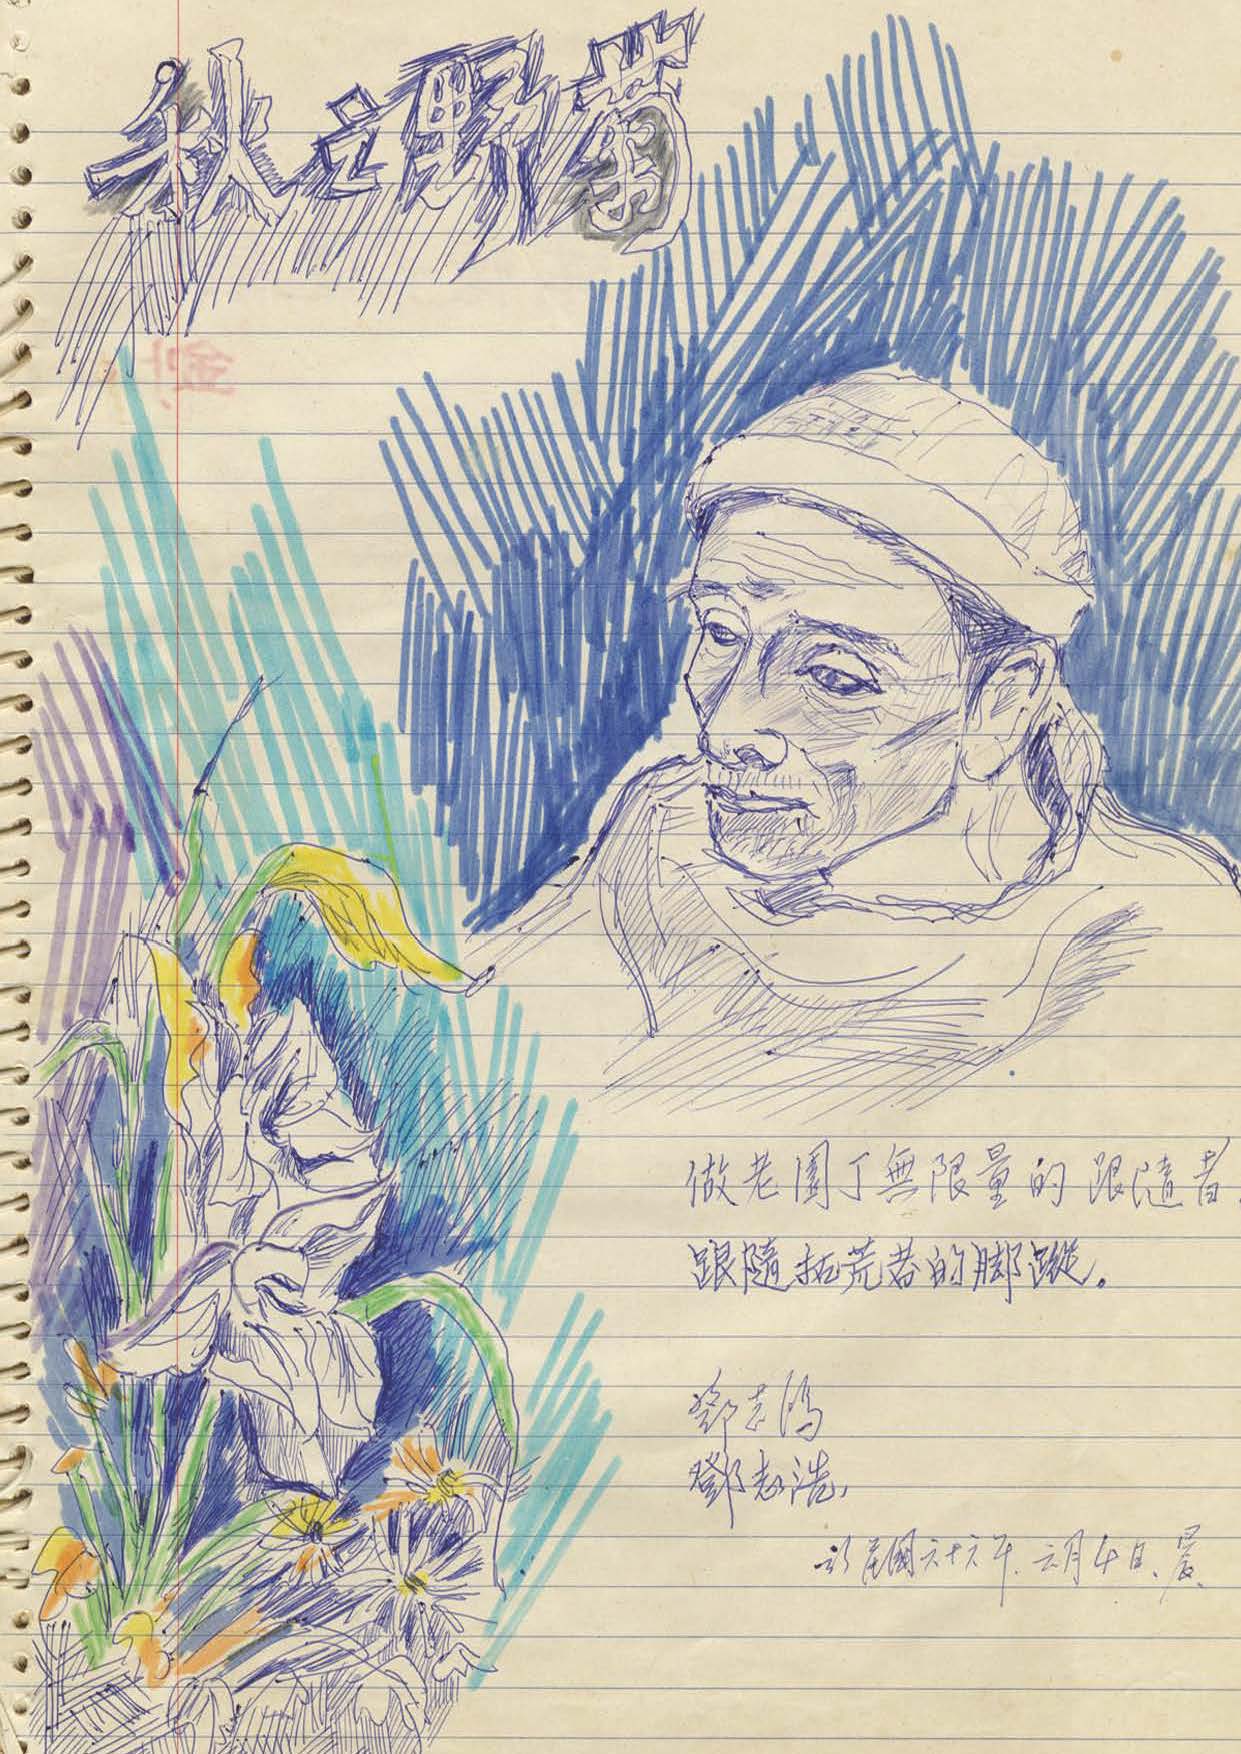 秋之野菊
做老園丁無限量的跟隨者,
跟隨拓荒者的脚蹤。
鄧志鴻
鄧志浩
於民國六十六年.六月 日、晨